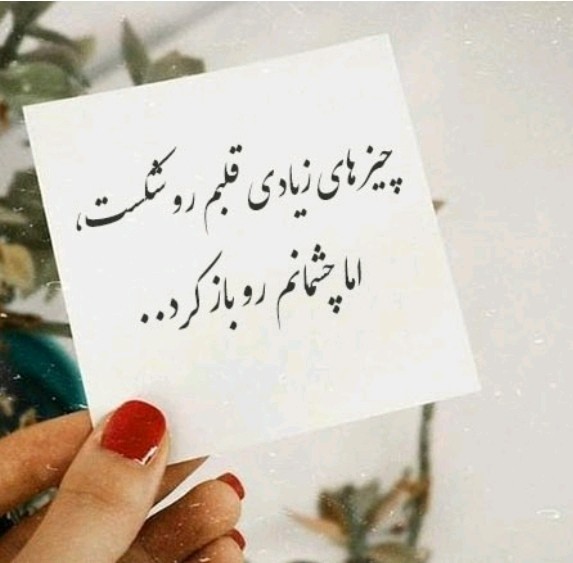 چیزهای زیادی قلبم رو شکست،
اما چشمانم رو باز کرد..